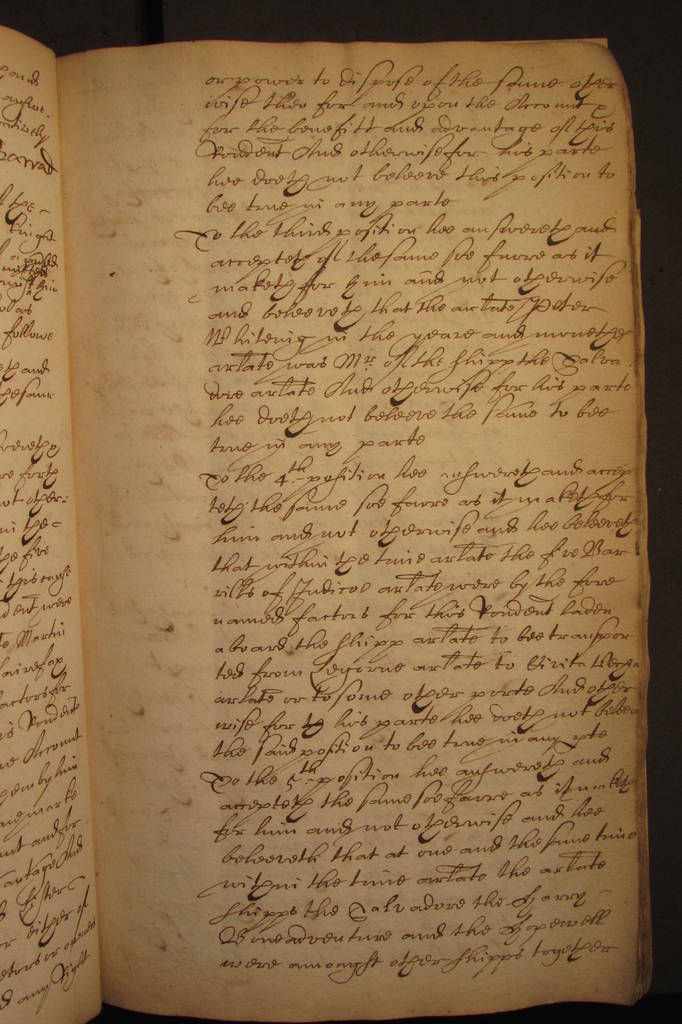 or power to dispose of the same other
wise then for and upon the Accompt &
for the benefitt and advantage of this
Rondent And otherwise for his parte
hee doeth not beleeve this position to
bee true in any parte
To the third position hee answereth and
accepteth of the same soe farre as it
maketh for him and not otherwise
and beleeveth that the arlate Peter
Whiteing in the yeare and moneths
arlate was Mr of the shipp the Salva
dore arlate And otherwise for his parte
hee doeth not beleeve the same to bee
true in any parte
To the 4th position hee answereth and accep
teth the same soe farre as it maketh for
him and not otherwise and hee beleeveth
that within the time arlate the five Bar
rills of Indicoe arlate were by the fore
named factors for this Rondent laden
aboard the shipp arlate to bee transpor
ted from Legorne arlate to Civita Vecha
arlate or to some other porte And other
wise for his parte hee doeth not beleeve
the said position to bee true in any pte
To the 5th position hee answereth and
accepteth the same soe farre as it maketh
for him and not otherwise and hee
beleeveth that at one and the same time
within the time arlate the arlate
shipps the Salvadore the Harry
Boneadventure and the Hopewell
were amongst other shipps together
Martin
fairefax
factors for
Rondent
Accompt
by him
marke
and for
And
either of
any Right
followe
and
the same
the five
were